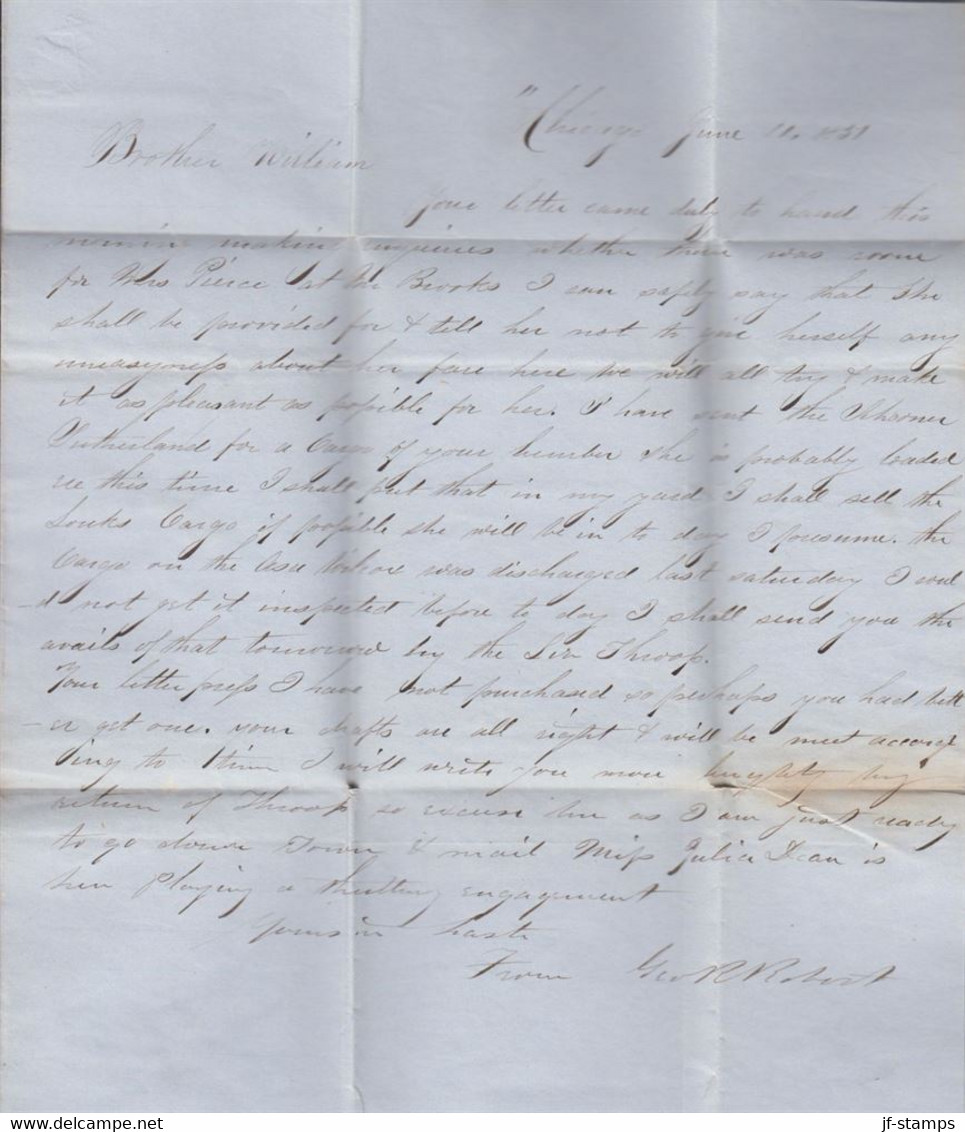 "Chicago June 21, 1851
Brother William
Your letter came duly to hand this
morning making enquiries whether there was room
for Mrs Pierce at the Brooks I can safely say that She
shall be provided for & tell her not to give herself any
uneasyness about her fare here We will all try & make
it as pleasant as possible for her. I have sent the Schooner
Sutherland for a Cargo of your lumber She is probably loaded
this time I shall put that in my yard I shall sell the
Louks Cargo if possible she will be in to day I presume. the
Cargo on the Asa Wilcox was discharged last saturday I coul
-d not get it inspected before to day I shall send you the
avails of that tomorrow by the Throop.
Your letter press I have not purchased so perhaps you had bett
-er get one. your drafts are all right & will be meet accord
ing to time I will write you more lenghtly by
return of Throop so excuse me as I am just ready
to go down Town & mail Miss Julia Dean is
here Playing a engagement
Yours in haste
From Geo R Robert
jf-stamps